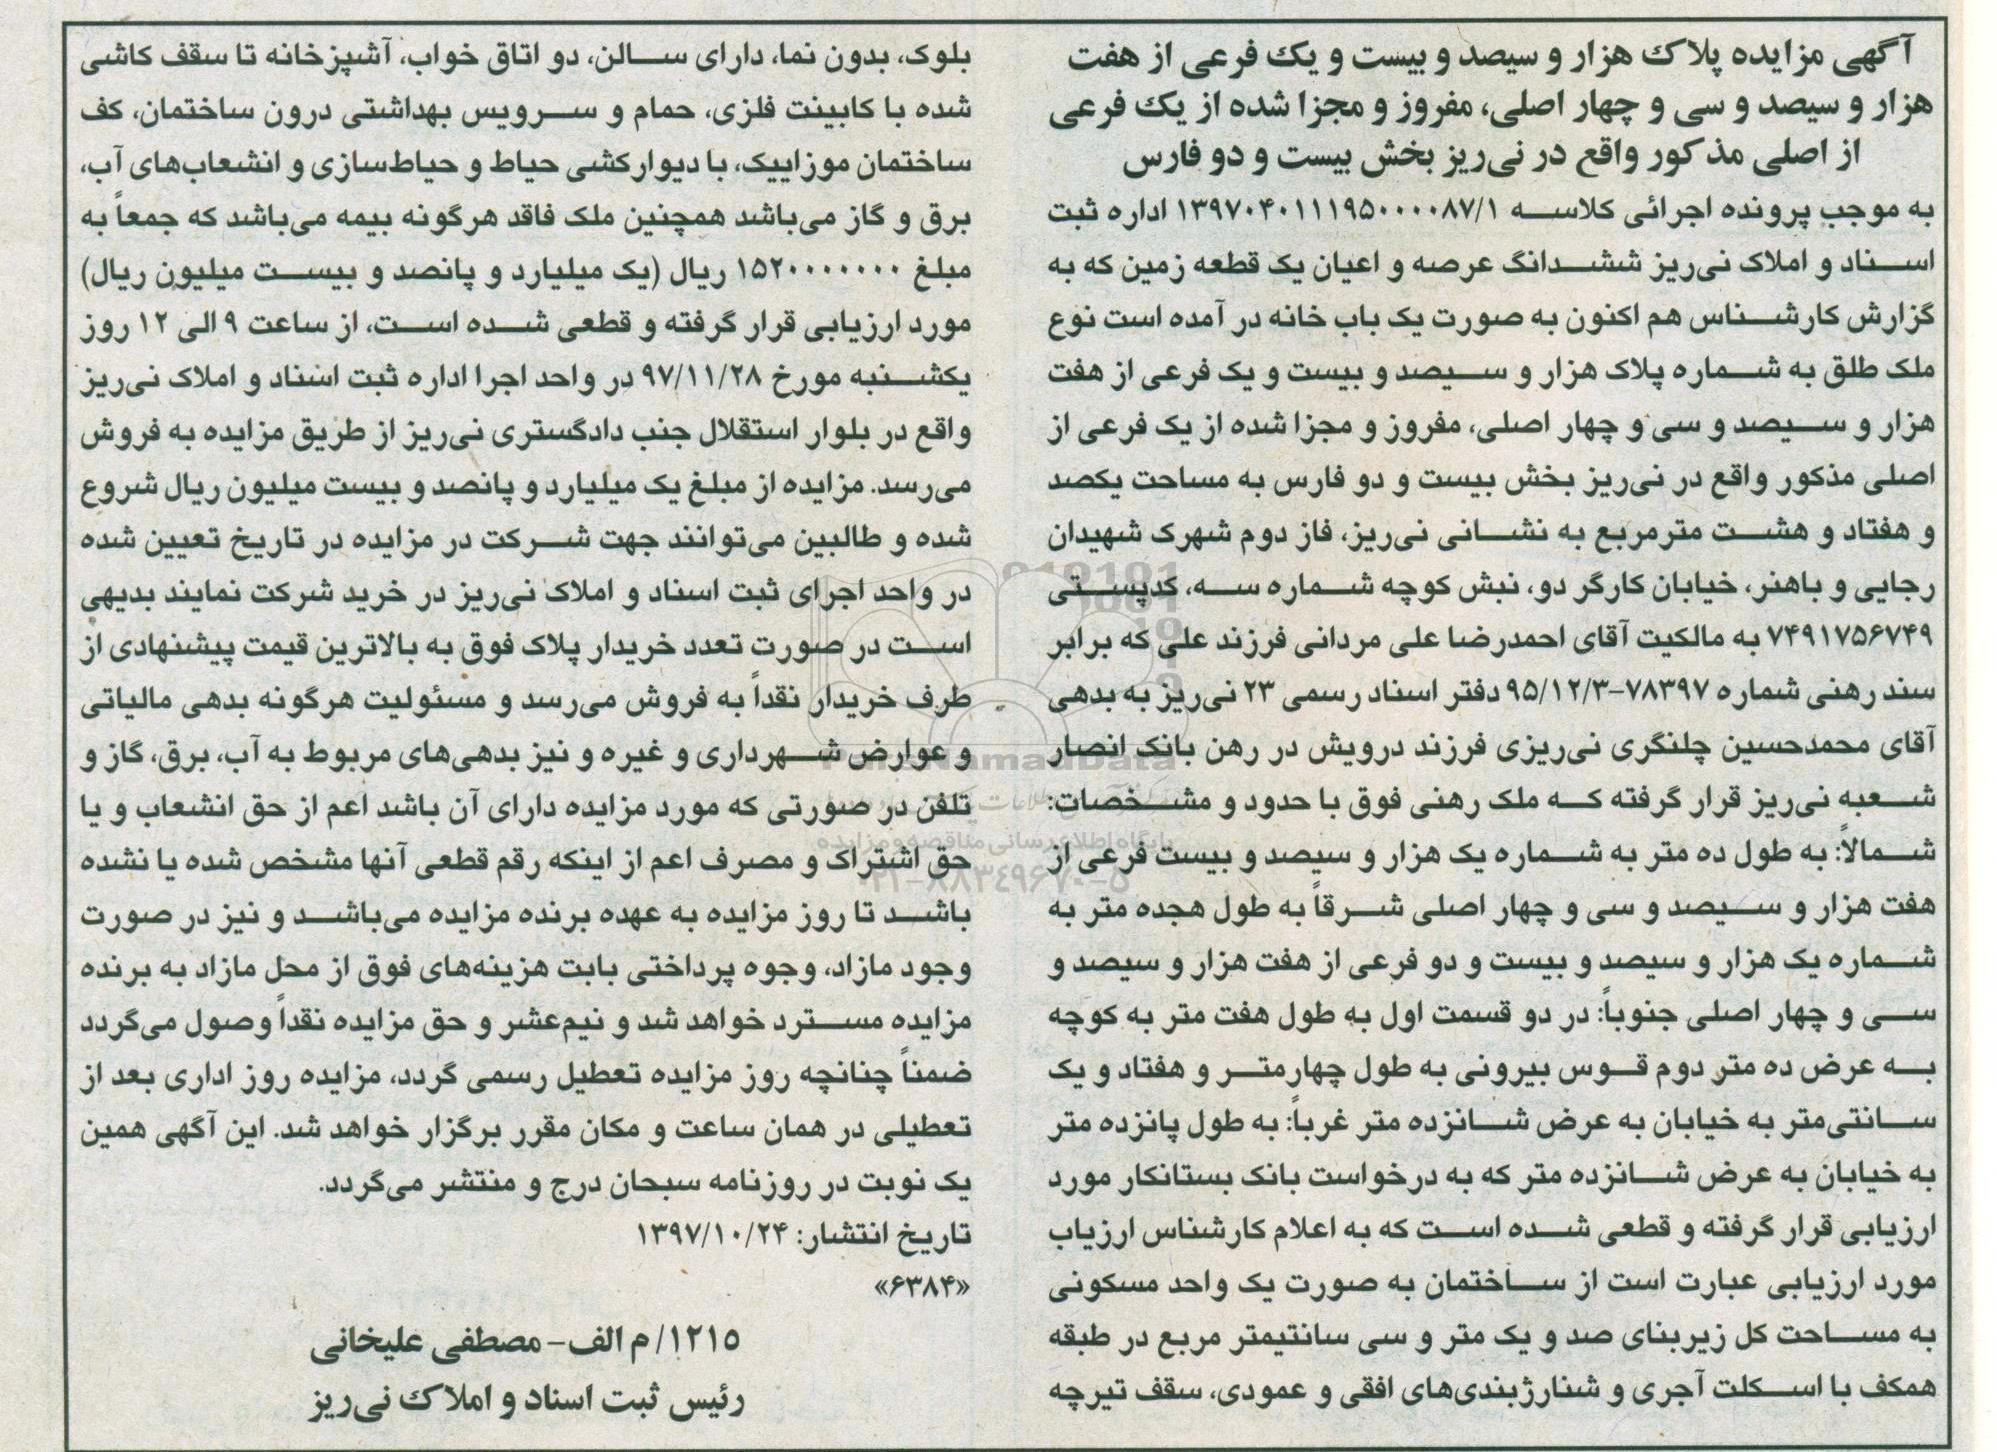 آگهی مزایده پلاک هزار و سیصد و بیست و یک فرعی از هفت
هزار و سیصد و سی و چهار اصلی، مفروز و مجزا شده از یک فرعی
از اصلی مذکور واقع در نی‌ریز بخش بیست و دو فارس
به موجب پرونده اجرائی کلاسه ۱۳۹۷۰۴۰۱۱۱۹۵۰۰۰۰۸۷/۱ اداره ثبت
اسناد و املاک نی‌ریز ششدانگ عرصه و اعیان یک قطعه زمین که به
گزارش کارشناس هم اکنون به صورت یک باب خانه در آمده است نوع
ملک طلق به شماره پلاک هزار و سیصد و بیست و یک فرعی از هفت
هزار و سیصد و سی و چهار اصلی، مفروز و مجزا شده از یک فرعی از
اصلی مذکور واقع در نی‌ریز بخش بیست و دو فارس به مساحت یکصد
و هفتاد و هشت مترمربع به نشانی نی‌ریز، فاز دوم شهرک شهیدان
رجایی و باهنر، خیابان کارگر دو، نبش کوچه شماره سه، کدپستی
۷۴۹۱۷۵۶۷۴۹ به مالکیت آقای احمدرضا علی مردانی فرزند علی که برابر
سند رهنی شماره ۷۸۳۹۷-۹۵/۱۲/۳ دفتر اسناد رسمی ۲۳ نی‌ریز به بدهی
آقای محمدحسین چلنگری نی‌ریزی فرزند درویش در رهن بانک انصار
شعبه نی‌ریز قرار گرفته که ملک رهنی فوق با حدود و مشخصات:
شمالاً: به طول ده متر به شماره یک هزار و سیصد و بیست فرعی از
هفت هزار و سیصد و سی و چهار اصلی شرقاً به طول هجده متر به
شماره یک هزار و سیصد و بیست و دو فرعی از هفت هزار و سیصد و
سی و چهار اصلی جنوباً: در دو قسمت اول به طول هفت متر به کوچه
به عرض ده متر دوم قوس بیرونی به طول چهارمتر و هفتاد و یک
سانتی‌متر به خیابان به عرض شانزده متر غرباً: به طول پانزده متر
به خیابان به عرض شانزده متر که به درخواست بانک بستانکار مورد
ارزیابی قرار گرفته و قطعی شده است که به اعلام کارشناس ارزیاب
مورد ارزیابی عبارت است از ساختمان به صورت یک واحد مسکونی
به مساحت کل زیربنای صد و یک متر و سی سانتیمتر مربع در طبقه
همکف با اسکلت آجری و شنارژبندی‌های افقی و عمودی، سقف تیرچه
بلوک، بدون نما، دارای سالن، دو اتاق خواب، آشپزخانه تا سقف کاشی
شده با کابینت فلزی، حمام و سرویس بهداشتی درون ساختمان، کف
ساختمان موزاییک، با دیوارکشی حیاط و حیاط‌سازی و انشعاب‌های آب،
برق و گاز می‌باشد همچنین ملک فاقد هرگونه بیمه می‌باشد که جمعاً به
مبلغ ۱۵۲۰۰۰۰۰۰۰ ریال (یک میلیارد و پانصد و بیست میلیون ریال)
مورد ارزیابی قرار گرفته و قطعی شده است، از ساعت ۹ الی ۱۲ روز
یکشنبه مورخ ۹۷/۱۱/۲۸ در واحد اجرا اداره ثبت اسناد و املاک نی‌ریز
واقع در بلوار استقلال جنب دادگستری نی‌ریز از طریق مزایده به فروش
می‌رسد. مزایده از مبلغ یک میلیارد و پانصد و بیست میلیون ریال شروع
شده و طالبین می‌توانند جهت شرکت در مزایده در تاریخ تعیین شده
در واحد اجرای ثبت اسناد و املاک نی‌ریز در خرید شرکت نمایند بدیهی
است در صورت تعدد خریدار پلاک فوق به بالاترین قیمت پیشنهادی از
طرف خریدار نقداً به فروش می‌رسد و مسئولیت هرگونه بدهی مالیاتی
و عوارض شهرداری و غیره و نیز بدهی‌های مربوط به آب، برق، گاز و
تلفن در صورتی که مورد مزایده دارای آن باشد اعم از حق انشعاب و یا
حق اشتراک و مصرف اعم از اینکه رقم قطعی آنها مشخص شده یا نشده
باشد تا روز مزایده به عهده برنده مزایده می‌باشد و نیز در صورت
وجود مازاد، وجوه پرداختی بابت هزینه‌های فوق از محل مازاد به برنده
مزایده مسترد خواهد شد و نیم‌عشر و حق مزایده نقداً وصول می‌گردد
ضمناً چنانچه روز مزایده تعطیل رسمی گردد، مزایده روز اداری بعد از
تعطیلی در همان ساعت و مکان مقرر برگزار خواهد شد. این آگهی همین
یک نوبت در روزنامه سبحان درج و منتشر می‌گردد.
تاریخ انتشار: ۱۳۹۷/۱۰/۲۴
«۶۳۸۴»
۱۲۱۵/ م الف- مصطفی علیخانی
رئیس ثبت اسناد و املاک نی‌ریز
ParsNamadData
پایگاه اطلاع رسانی مناقصه و مزایده
۰۲۱-۸۸۳۴۹۶۷۰-۵